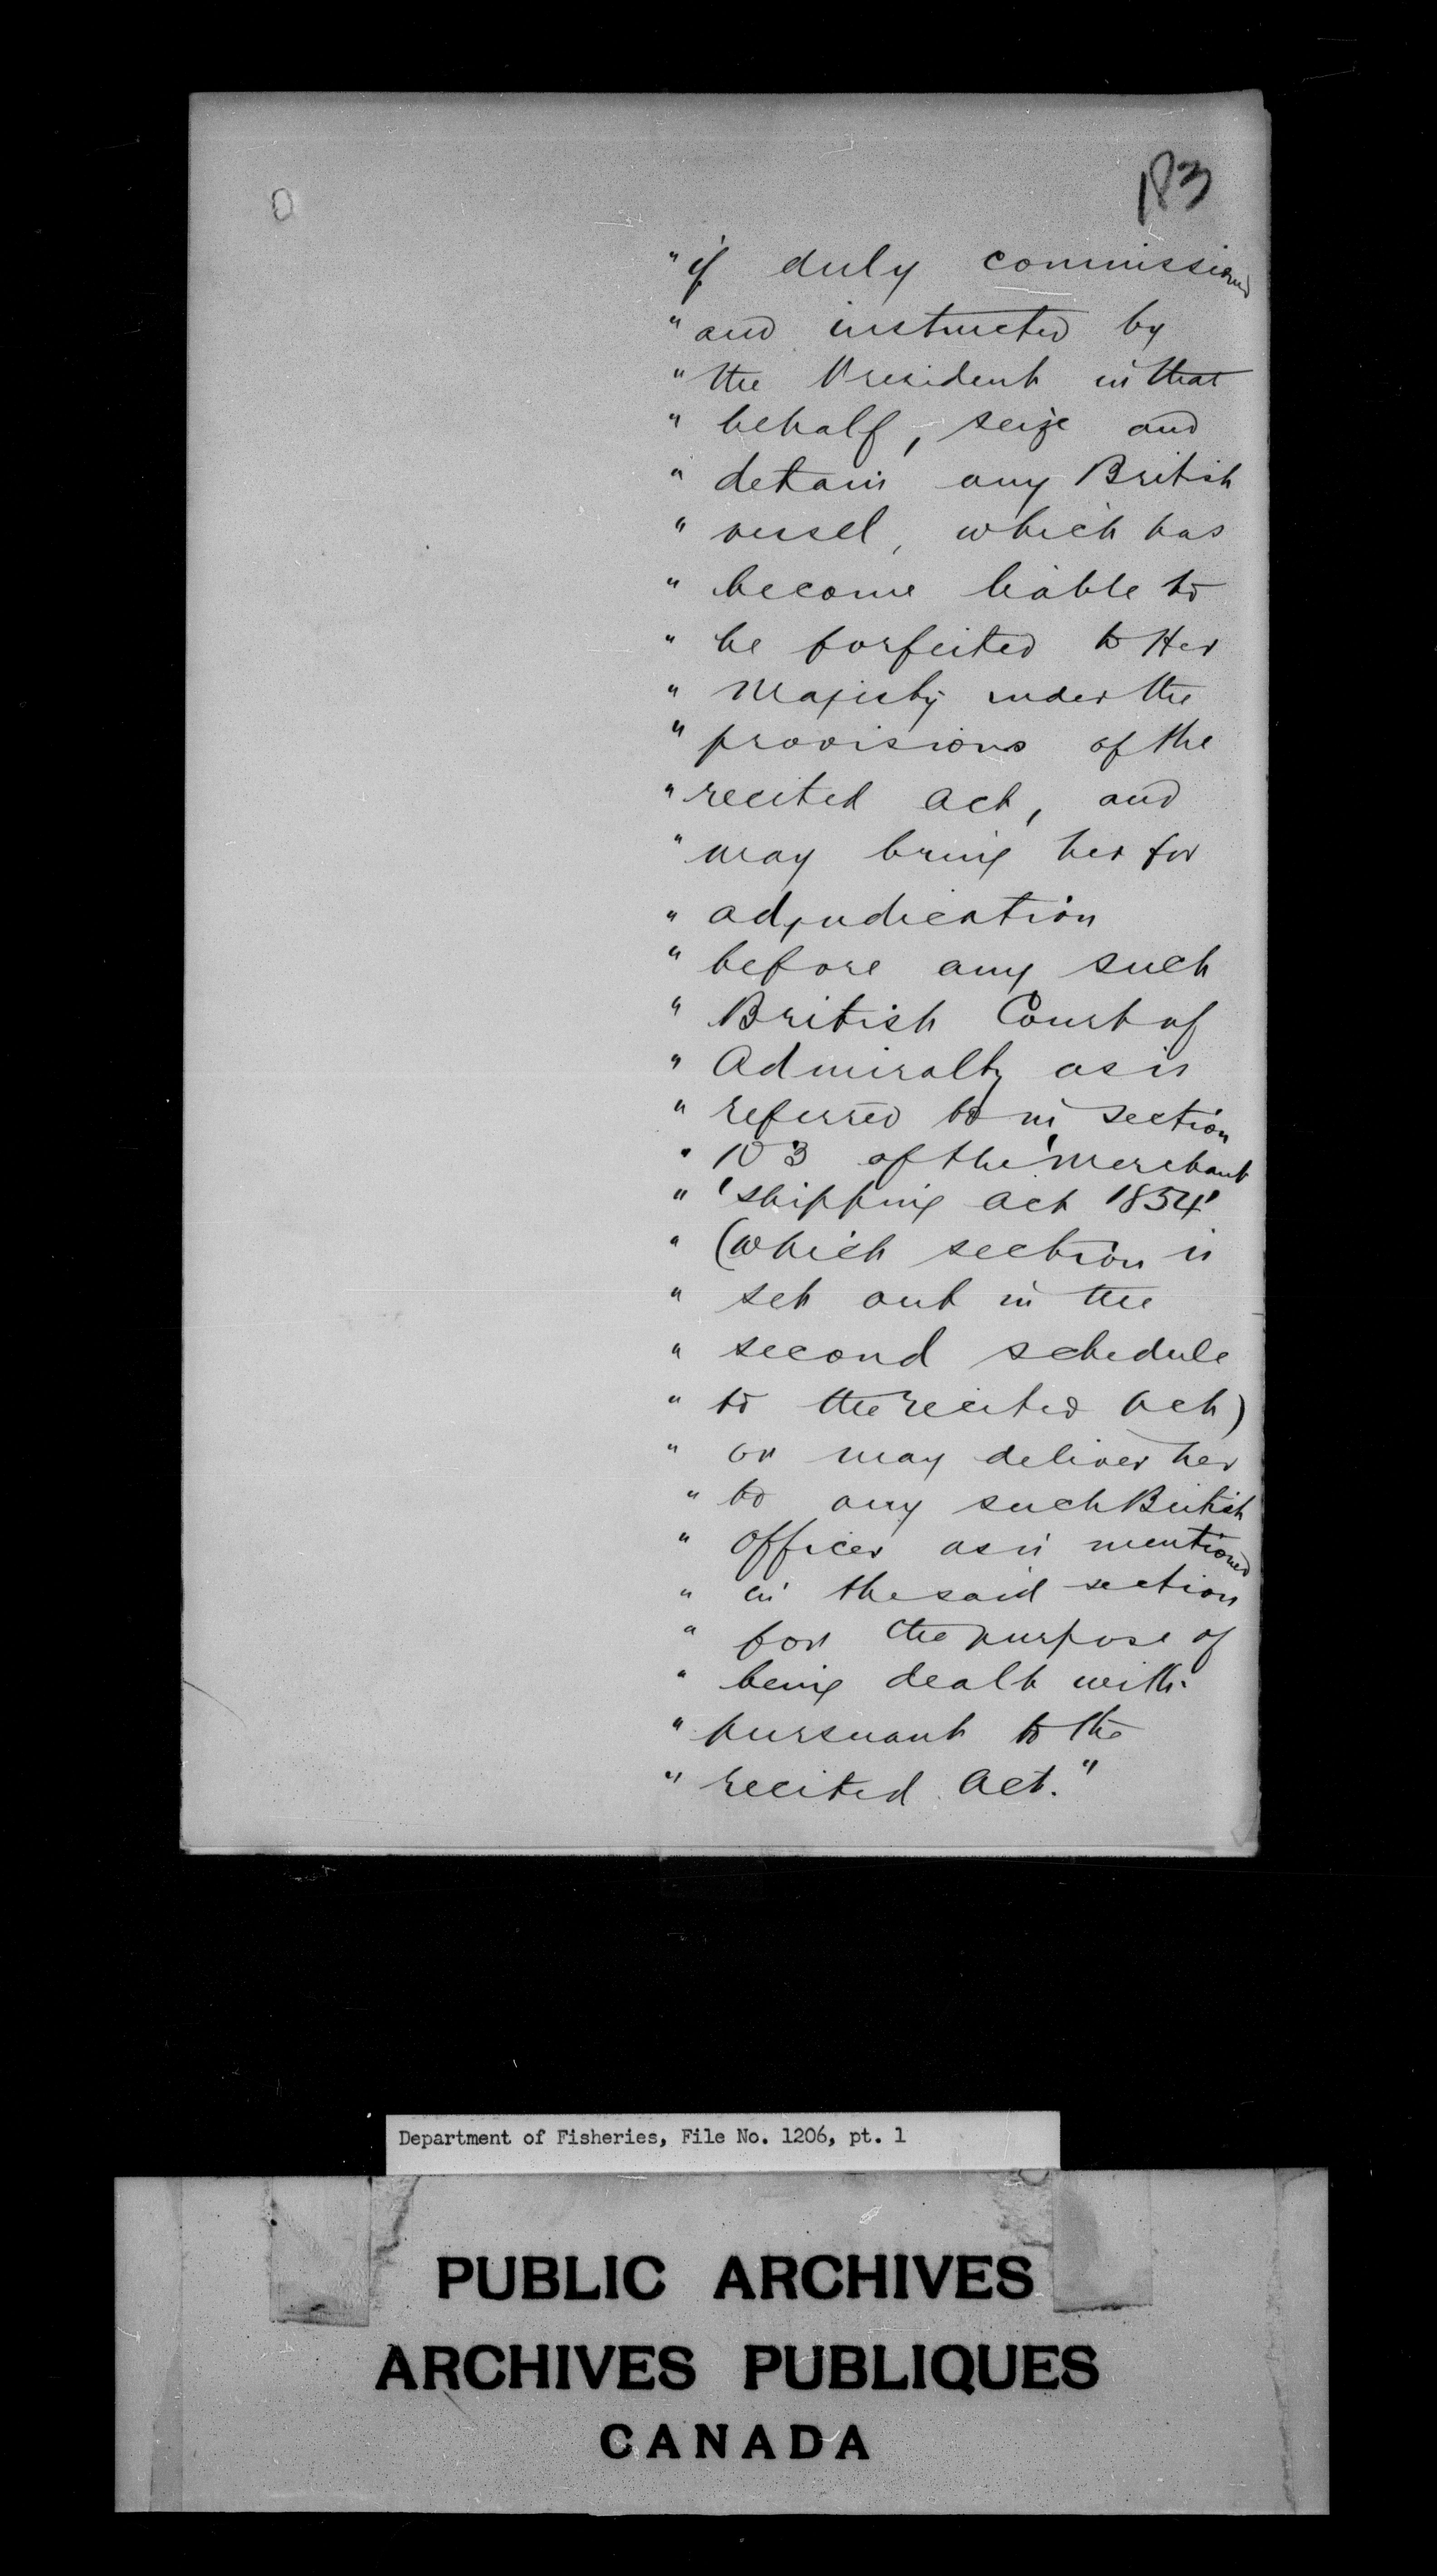 183
"if duly commissioned
"and instructed by
"the President in that
"behalf, seize and
"detain any British
"vessel, which has
"become liable to
"be forfeited to Her
"Majesty under the
"provisions of the
"recited act, and
"may bring her for
"adjudication
"before any such
"British Court of
"Admiralty as is
"referred to in section
"103 of the 'Merchant
"'Shipping Act 1854'
"(which section is
"set out in the
"second schedule
"to the recited Act)
"or may deliver her
"to any such British
"Officer as is mentioned
"in the said section
"for the purpose of
"being dealt with
"pursuant to the
"recited Act."
Department of Fisheries, File No. 1206, pt. 1
PUBLIC ARCHIVES
ARCHIVES PUBLIQUES
CANADA